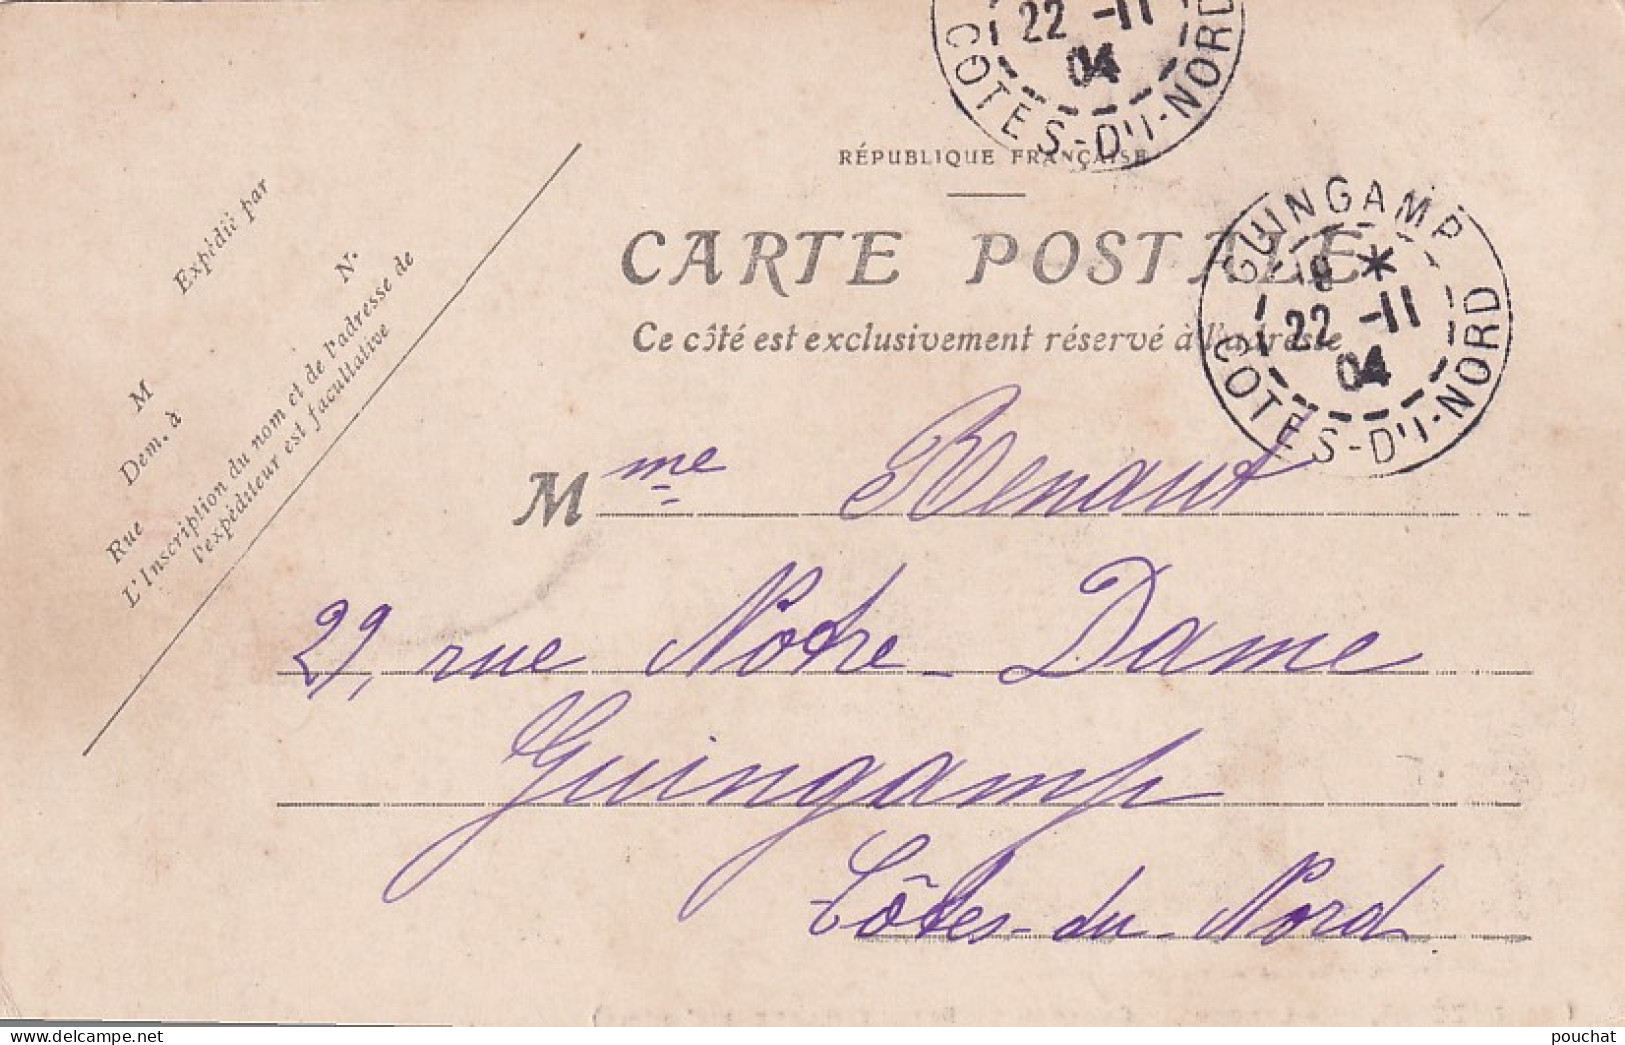 22 -11
04
COTES-DU-NORD
RÉPUBLIQUE FRANÇAISE
CARTE POSTALE
Ce côté est exclusivement réservé à l'adresse
GUINGAMP
*
22 -11
04
COTES-DU-NORD
Expédié par
N°
M
Dem. à
Rue
L'Inscription du nom et de l'adresse de
l'expéditeur est facultative
Mme Renaut
29, rue Notre-Dame
Guingamp
Côtes-du-Nord
pouchat